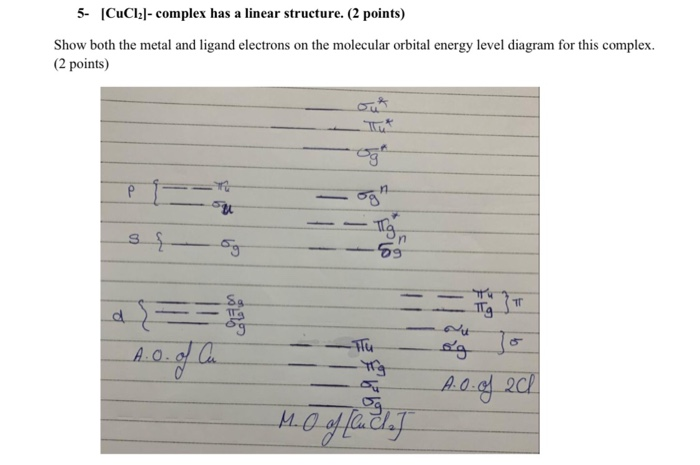 5- [CuCl₂]- complex has a linear structure. (2 points)
Show both the metal and ligand electrons on the molecular orbital energy level diagram for this complex.
(2 points)
σu*
πu*
σg*
p { πu
σu
σgⁿ
πg*
s { σg
δgⁿ
d { δg
πg
σg
πu } π
πg
σu } σ
σg
A.O. of Cu
πu
πg
σu
σg
A.O. of 2Cl
M.O of [CuCl₂]⁻